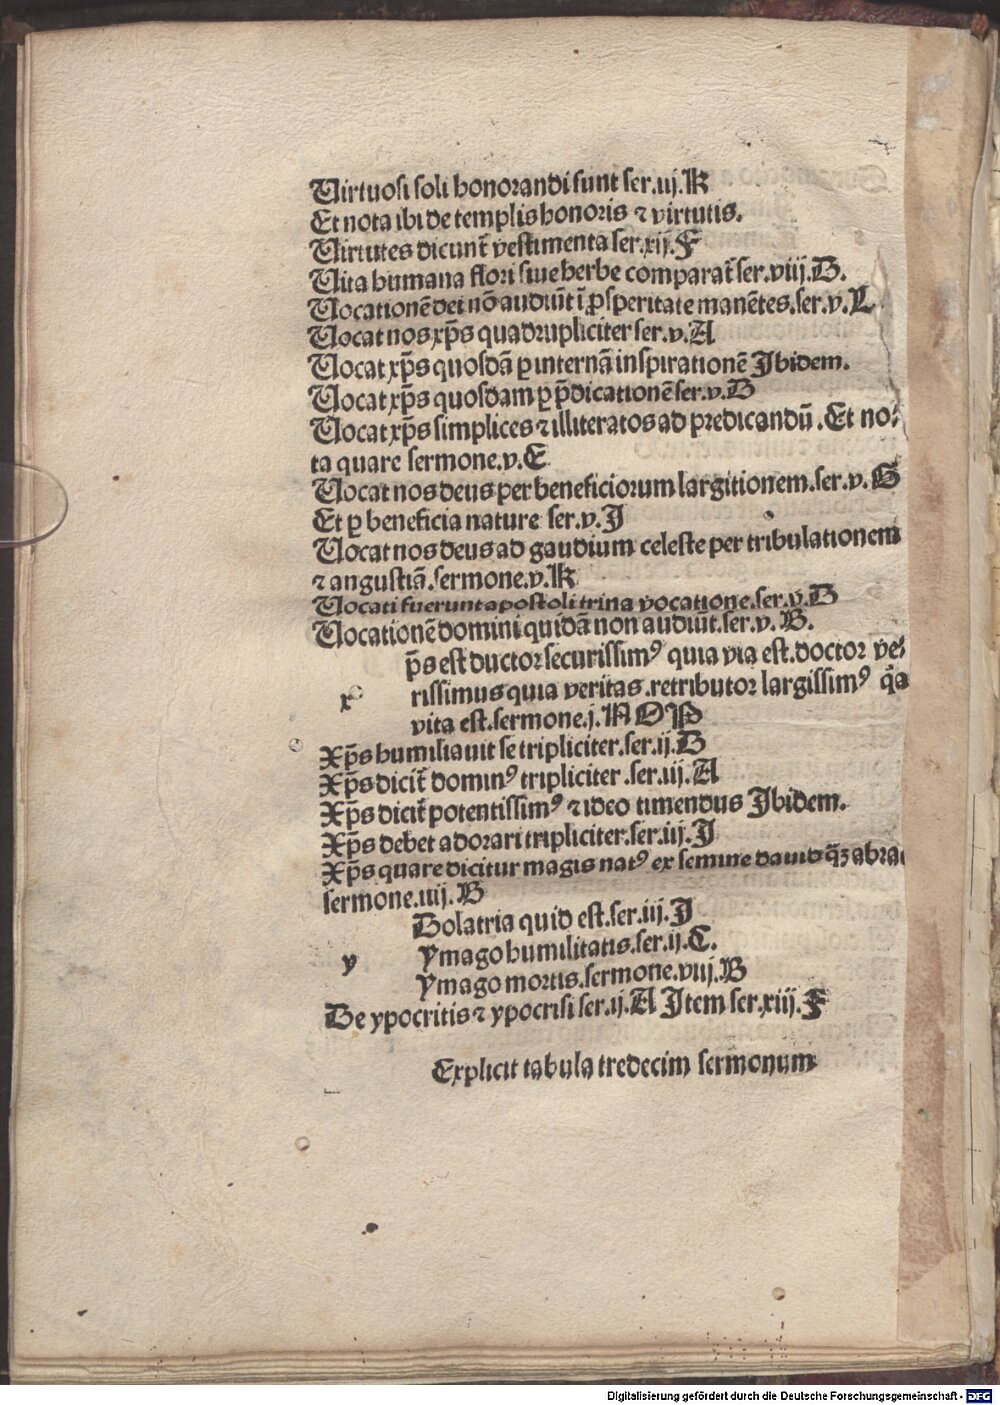 Virtuosi soli honorandi sunt ser.ij.K
Et nota ibi de templis honoris ⁊ virtutis.
Virtutes dicunt᷑ vestimenta ser.xij.F
Vita humana flori siue herbe comparat᷑ ser.viij.B.
Vocationē dei nō audiūt ī ꝓsperitate manētes.ser.v.L
Vocat nos xp̄s quadrupliciter ser.v.A
Vocat xp̄s quosdā ꝑ internā inspirationē Ibidem.
Vocat xp̄s quosdam ꝑ p̄dicationē ser.v.B
Vocat xp̄s simplices ⁊ illiteratos ad predicandū .Et no⸗
ta quare sermone.v.E
Vocat nos deus per beneficiorum largitionem.ser.v.G
Et ꝑ beneficia nature ser.v.I
Vocat nos deus ad gaudium celeste per tribulationem
⁊ angustiā.sermone.v.K
Vocati fuerunt apostoli trina vocatione.ser.v.D
Vocationē domini quidā non audiūt.ser.v.B.
p̄s est ductor securissimꝰ quia via est.doctor ve⸗
x rissimus quia veritas.retributor largissimꝰ q̄a
vita est.sermone.j.N O P
Xp̄s humiliauit se tripliciter.ser.ij.B
Xp̄s dicit᷑ dominꝰ tripliciter.ser.iij.A
Xp̄s dicit᷑ potentissimꝰ ⁊ ideo timendus Ibidem.
Xp̄s debet adorari tripliciter.ser.iij.I
Xp̄s quare dicitur magis natꝰ ex semine dauid q̄ꝫ abra
sermone.iiij.B
Dolatria quid est.ser.iij.I
y ymago humilitatis.ser.ij.C.
ymago mortis.sermone.viij.B
De ypocritis ⁊ ypocrisi ser.ij.A Item ser.xiij.F
Explicit tabula tredecim sermonum
Digitalisierung gefördert durch die Deutsche Forschungsgemeinschaft - DFG